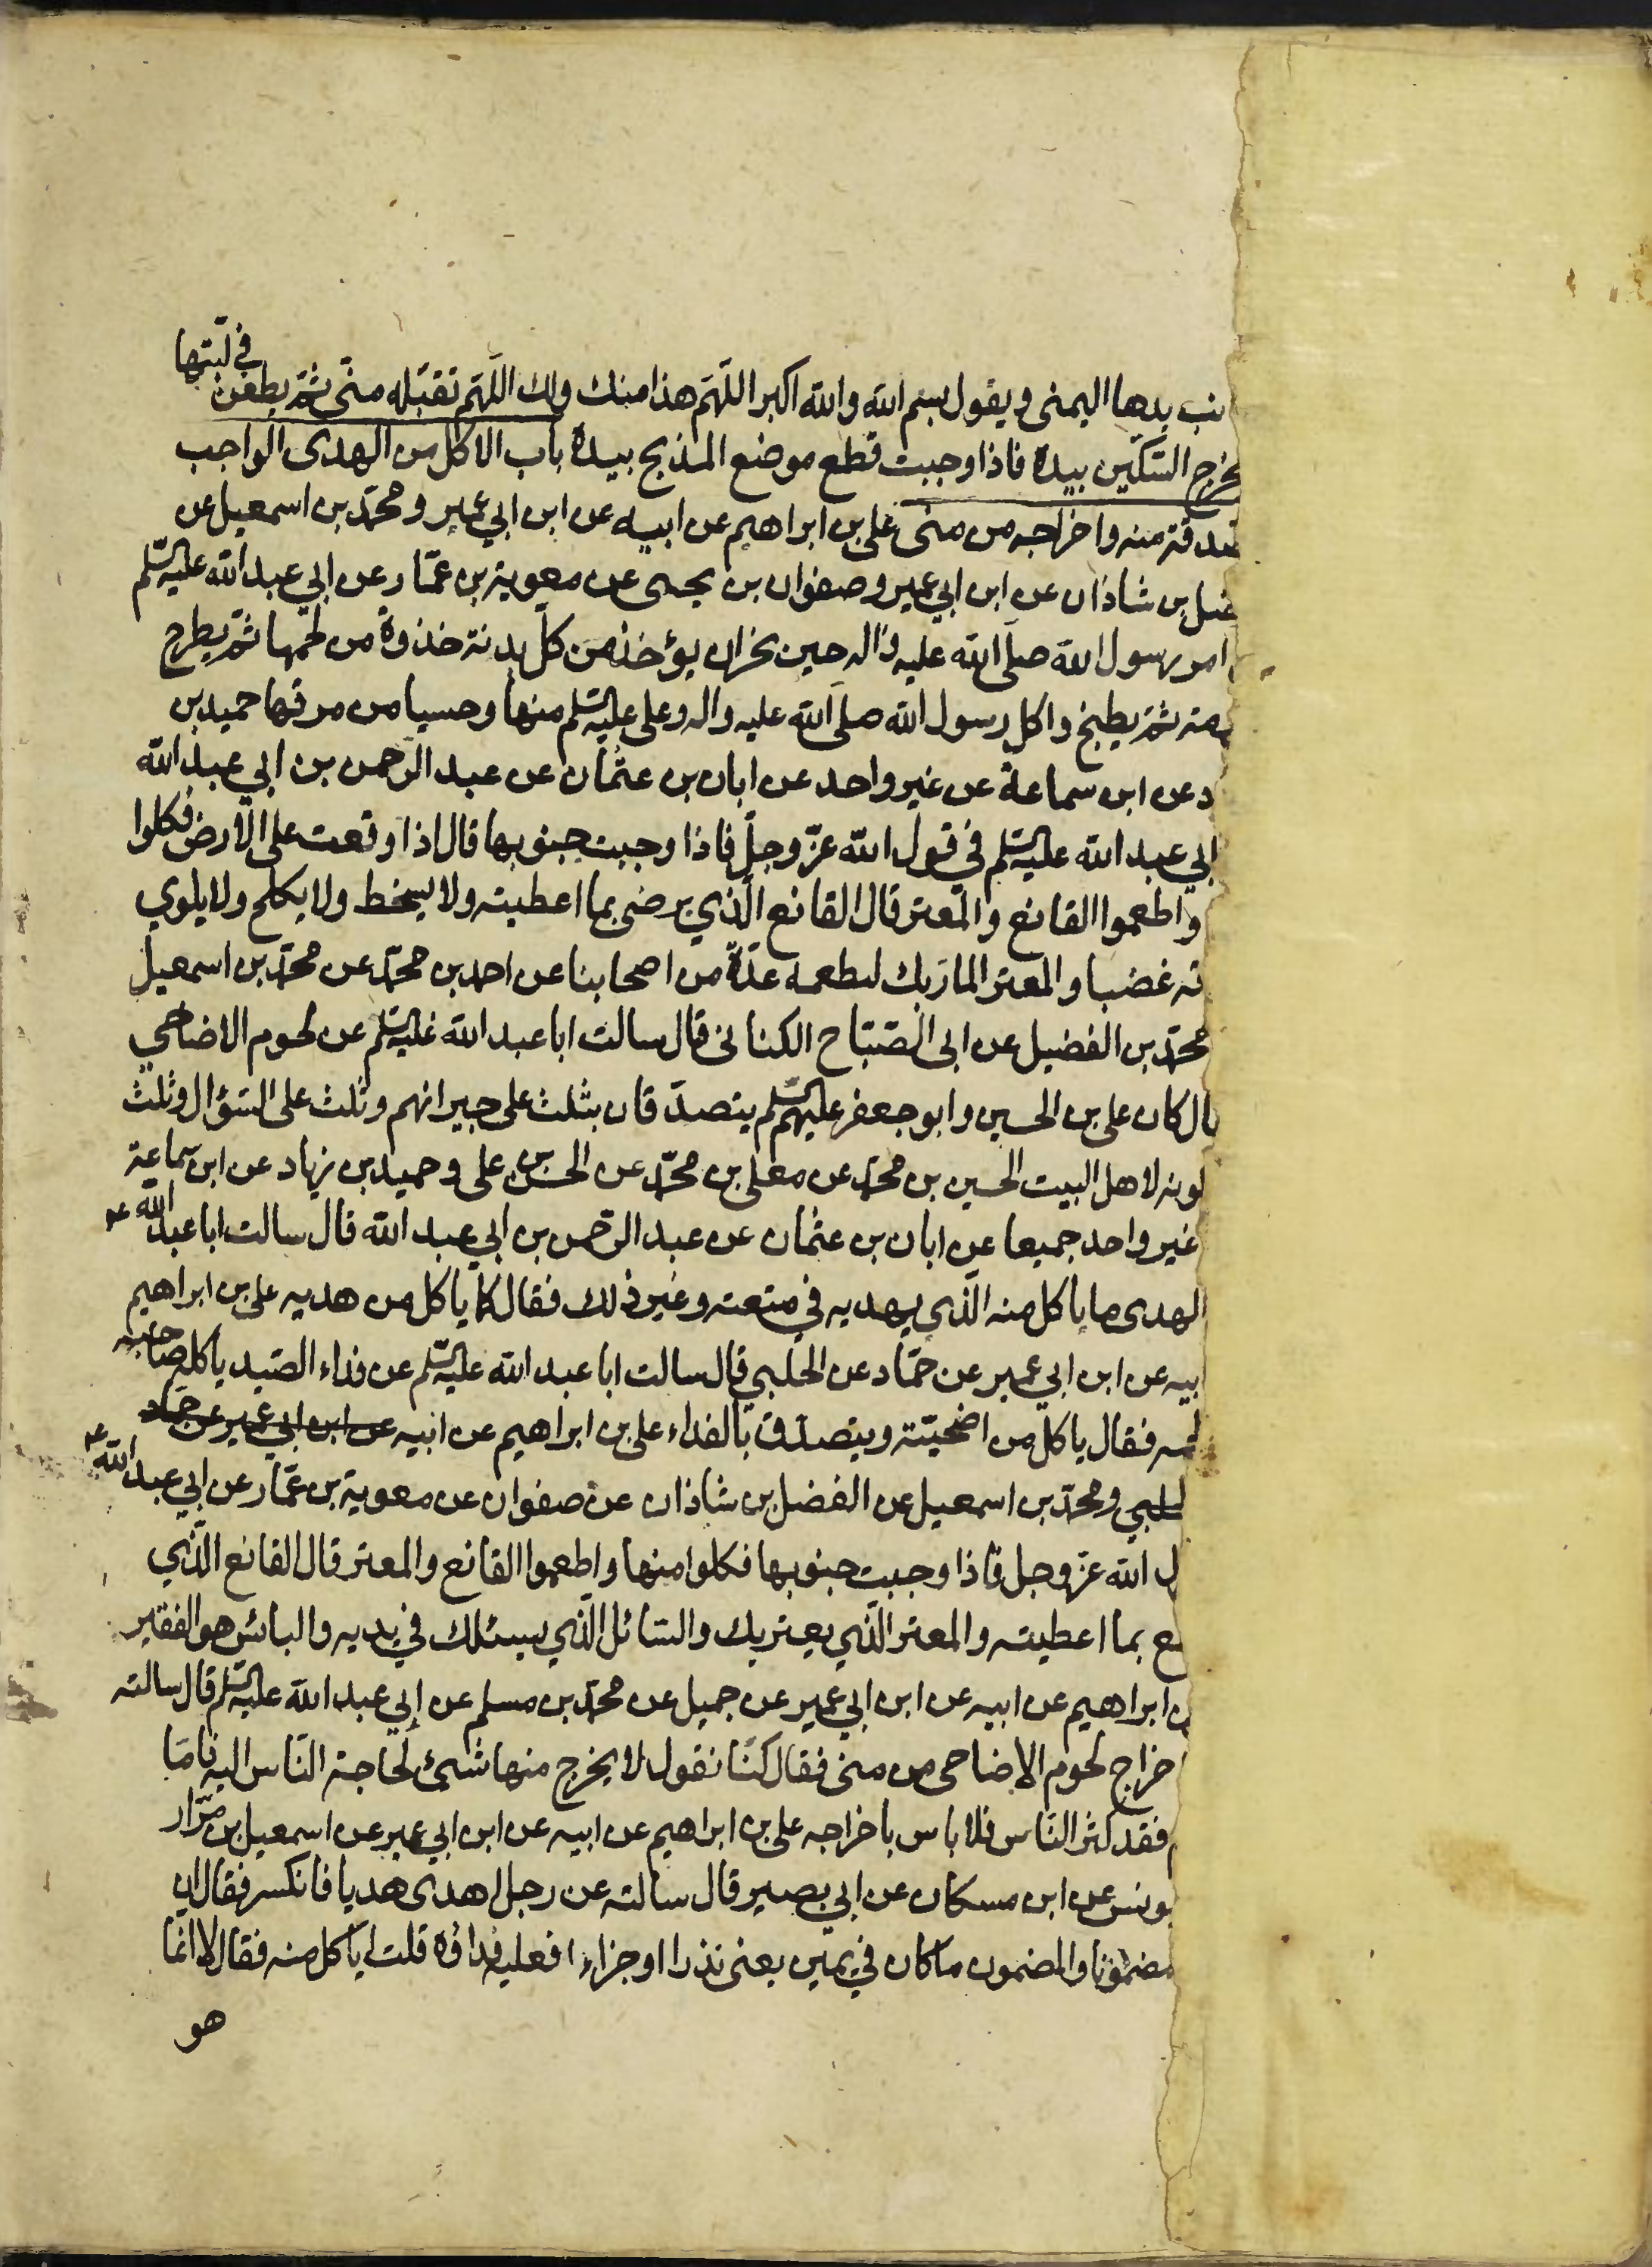 في لبتها
نب يدها اليمنى ويقول بسم الله والله اكبر اللهم هذا منك ولك اللهم تقبله منى ثم يطعن
يخرج السكين بيده فاذا وجبت قطع موضع المذبح بيده باب الاكل من الهدى الواجب
صدقة منه واخراجه من منى على بن ابراهيم عن ابيه عن ابن ابي عمير ومحمد بن اسمعيل عن
ضل بن شاذان عن ابن ابي عمير وصفوان بن يحيى عن معوية بن عمار عن ابي عبد الله عليه السلم
امر رسول الله صلى الله عليه واله حين نحر ان يؤخذ من كل بدنة خذوة من لحمها ثم يطرح
مة ثم يطبخ واكل رسول الله صلى الله عليه واله وعلى عليه السلم منها وحسيا من مرقها حميد بن
د عن ابن سماعة عن غير واحد عن ابان بن عثمان عن عبد الرحمن بن ابي عبد الله
ابي عبد الله عليه السلم في قول الله عز وجل فاذا وجبت جنوبها قال اذا وقعت على الارض فكلوا
واطعموا القانع والمعتر قال القانع الذي يرضى بما اعطيته ولا يسخط ولا يكلح ولا يلوي
قه غضبا والمعتر المار بك لتطعمه عدة من اصحابنا عن احمد بن محمد عن محمد بن اسمعيل
محمد بن الفضيل عن ابى الصباح الكنانى قال سالت ابا عبد الله عليه السلم عن لحوم الاضاحي
ال كان على بن الحسين وابو جعفر عليهم السلم يتصدقان بثلث على جيرانهم وثلث على السؤال وثلث
كونه لاهل البيت الحسين بن محمد عن معلى بن محمد عن الحسن بن على وحميد بن زياد عن ابن سماعة
غير واحد جميعا عن ابان بن عثمان عن عبد الرحمن بن ابي عبد الله قال سالت ابا عبد الله ع
الهدى ما ياكل منه الذي يهديه في متعته وغير ذلك فقال كما ياكل من هديه على بن ابراهيم
ابيه عن ابن ابي عمير عن حماد عن الحلبي قال سالت ابا عبد الله عليه السلم عن فداء الصيد ياكل صاحبه
لحمه فقال ياكل من اضحيته ويتصدق بالفداء على بن ابراهيم عن ابيه عن ابن ابي عمير عن حماد
لحلبي ومحمد بن اسمعيل عن الفضل بن شاذان عن صفوان عن معوية بن عمار عن ابي عبد الله ع
ل الله عز وجل فاذا وجبت جنوبها فكلوا منها واطعموا القانع والمعتر قال القانع الذي
نع بما اعطيته والمعتر الذي يعتريك والسائل الذي يسئلك في يديه والبائس هو الفقير
ن ابراهيم عن ابيه عن ابن ابي عمير عن جميل عن محمد بن مسلم عن ابي عبد الله عليه السلم قال سالته
اخراج لحوم الاضاحى من منى فقال كنا نقول لا يخرج منها شئ لحاجة الناس اليه فاما
فقد كثر الناس فلا باس باخراجه على بن ابراهيم عن ابيه عن ابن ابي عمير عن اسمعيل بن مرار
يونس عن ابن مسكان عن ابي بصير قال سالته عن رجل اهدى هديا فانكسر فقال ان
مضمونا والمضمون ما كان في يمين يعنى نذرا او جزاء فعليه فداؤه قلت اياكل منه فقال لا انما
هو